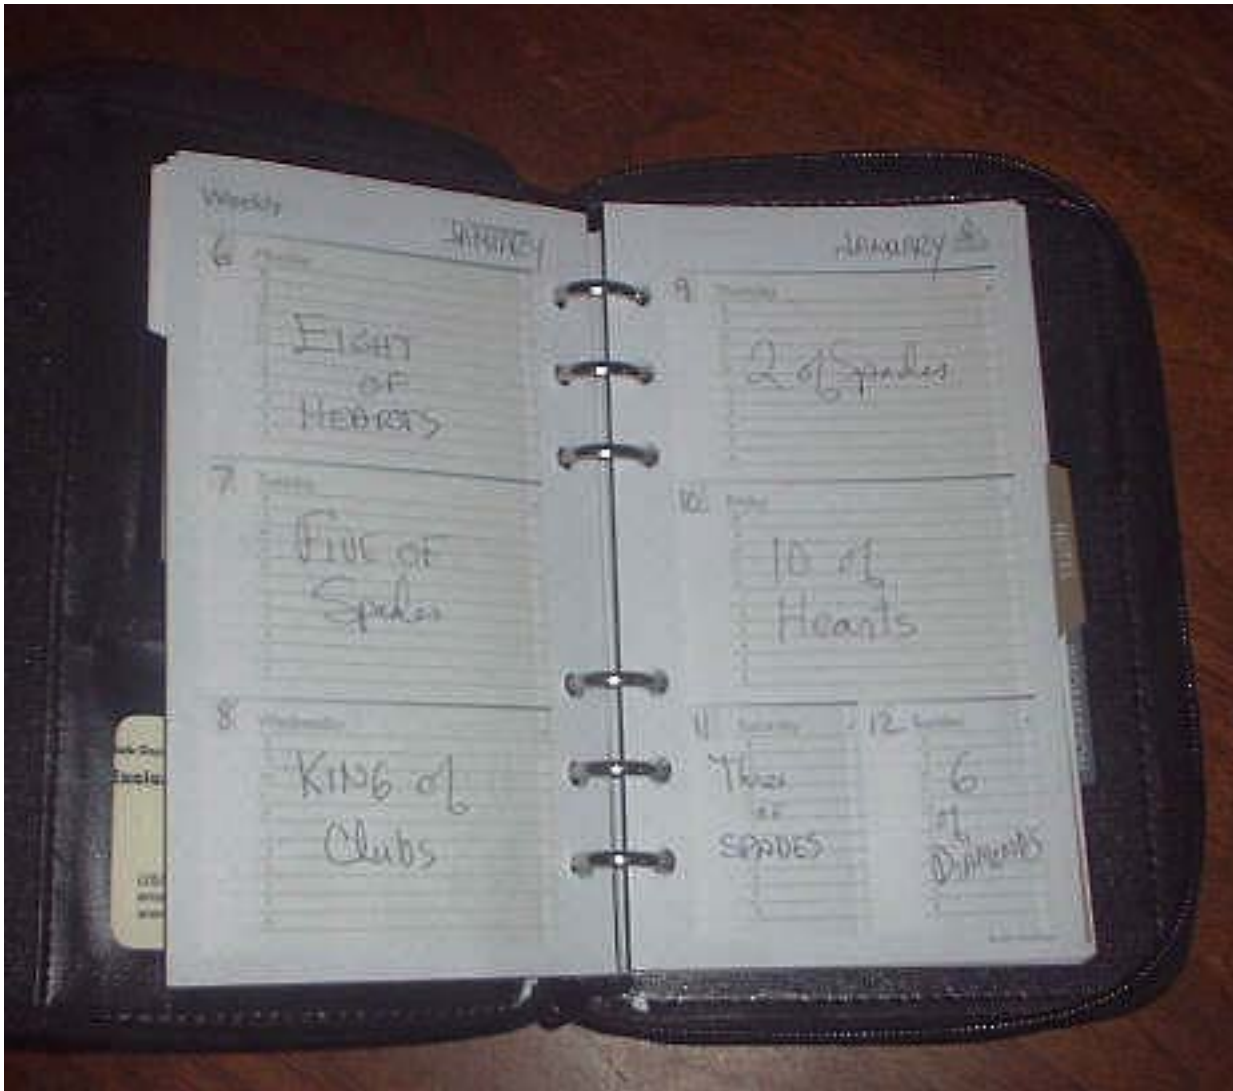 Weekly
JANUARY
6
Monday
EIGHT
OF
HEARTS
7
Tuesday
FIVE OF
Spades
8
Wednesday
KING of
Clubs
JANUARY
9
Thursday
2 of Spades
10
Friday
10 of
Hearts
11
Saturday
Three
of
SPADES
12
Sunday
6
of
DIAMONDS